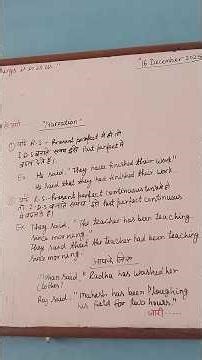 "16 December 2025
"Narration"
① यदि R.S - Present perfect में हो तो
I.D.S बनाते समय इसे Past perfect में
बदल देते हैं।
Ex. He said, "They have finished their work"
He said that they had finished their work.
② यदि R.S - Present perfect continuous tense में हो
तो I.D.S बनाते समय इसे Past perfect continuous
में बदलते हैं।
Ex. They said, "The teacher has been teaching
since morning."
They said that the teacher had been teaching
since morning.
said, "Radha has washed her
clothes."
Raj said, "Mahesh has been ploughing
his field for two hours."
जारी.....